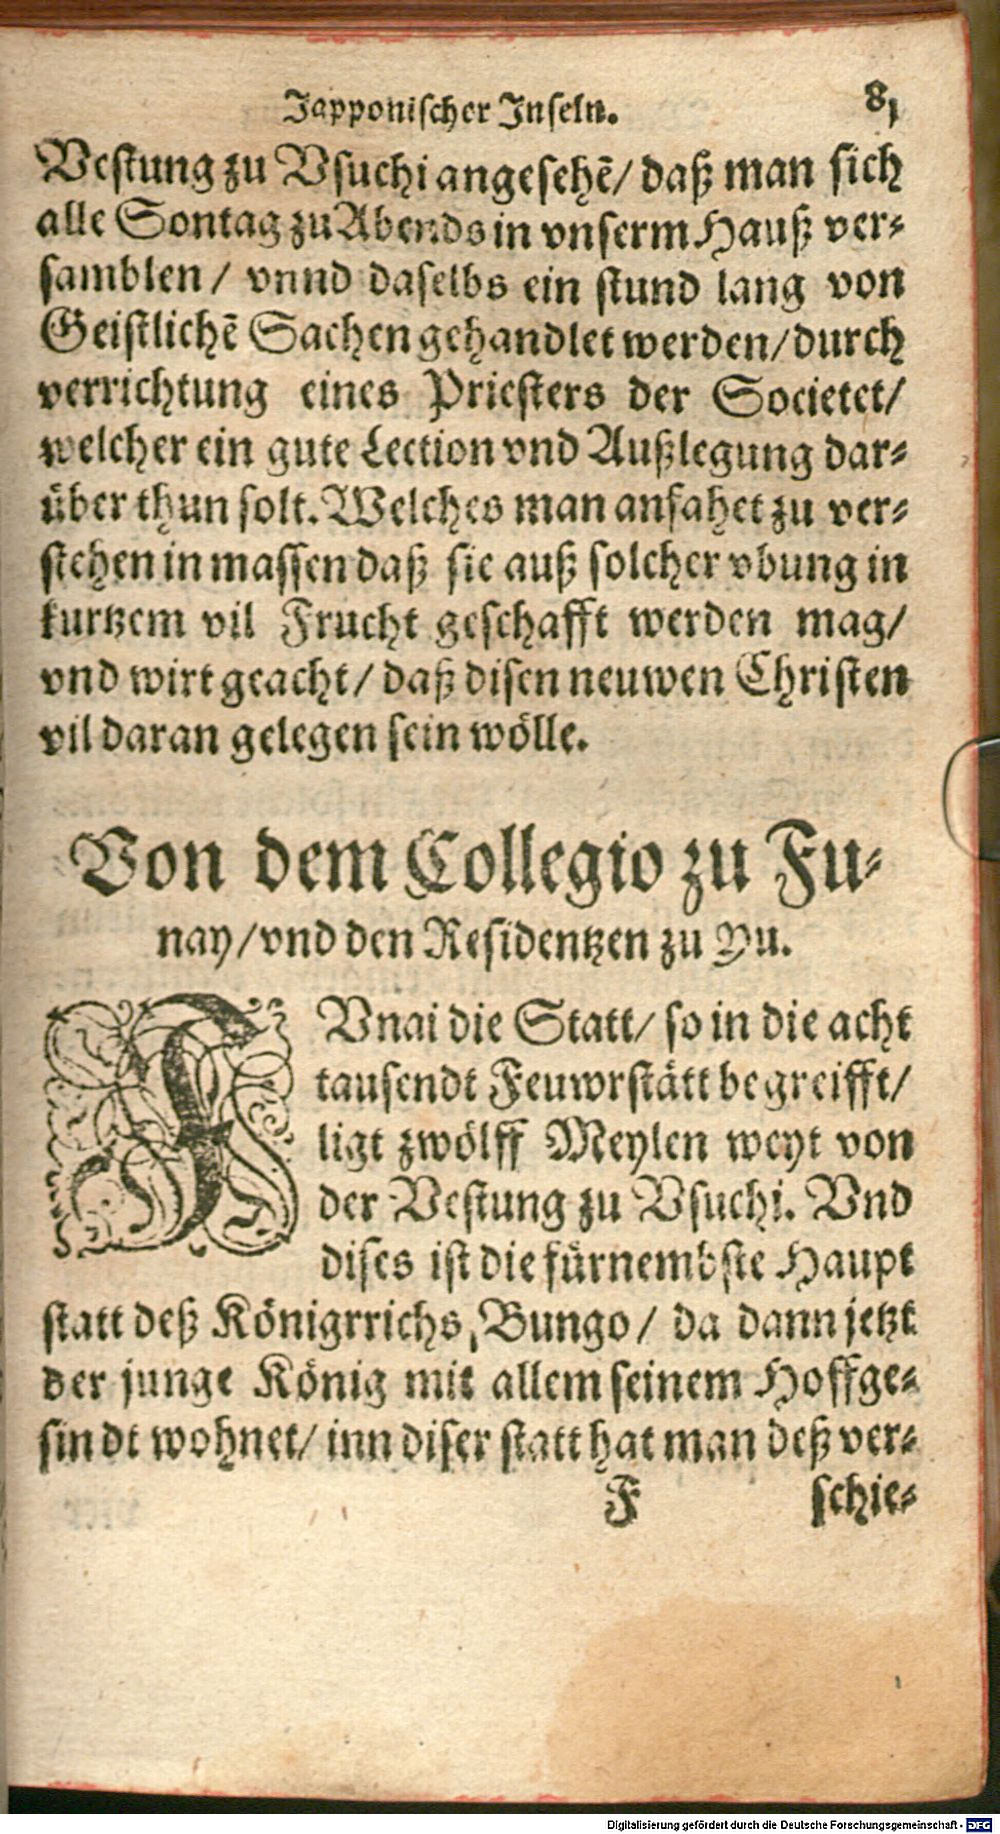 Japponischer Inseln. 81
Vestung zu Vsuchi angesehẽ/ daß man sich
alle Sontag zu Abends in vnserm Hauß ver-
samblen/ vnnd daselbs ein stund lang von
Geistlichẽ Sachen gehandlet werden/ durch
verrichtung eines Priesters der Societet/
welcher ein gute Lection vnd Außlegung dar-
über thun solt. Welches man anfahet zu ver-
stehen in massen daß sie auß solcher vbung in
kurtzem vil Frucht geschafft werden mag/
vnd wirt geacht/ daß disen neuwen Christen
vil daran gelegen sein wölle.
Von dem Collegio zu Fu-
nay/ vnd den Residentzen zu Yu.
FVnai die Statt/ so in die acht
tausendt Feuwrstätt begreifft/
ligt zwölff Meylen weyt von
der Vestung zu Vsuchi. Vnd
dises ist die fürnembste Haupt
statt deß Königrrichs, Bungo/ da dann jetzt
der junge König mit allem seinem Hoffge-
sindt wohnet/ inn diser statt hat man deß ver-
F schie-
Digitalisierung gefördert durch die Deutsche Forschungsgemeinschaft - DFG